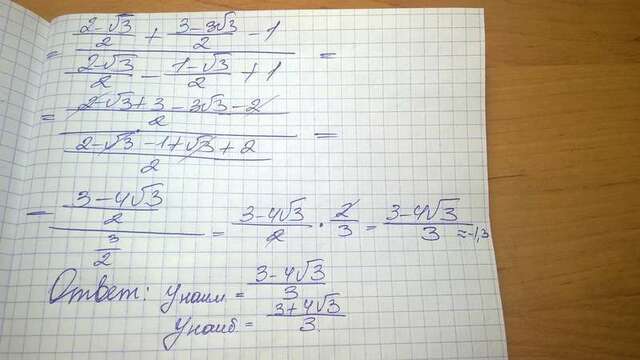 = (2-√3)/2 + (3-3√3)/2 - 1 =
(2-√3)/2 - (1-√3)/2 + 1
= (2-√3+3-3√3-2)/2 =
(2-√3-1+√3+2)/2
= (3-4√3)/2 = (3-4√3)/2 · 2/3 = (3-4√3)/3 ≈ -1,3
3/2
Ответ: yнаим = (3-4√3)/3
yнаиб = (3+4√3)/3